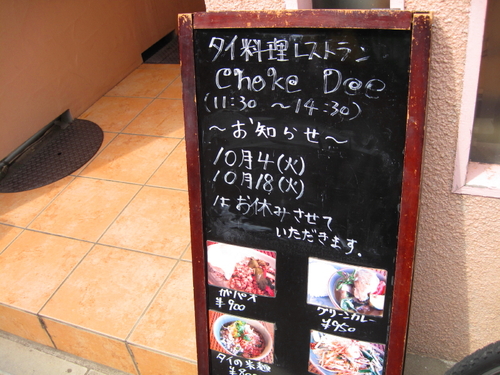 タイ料理レストラン
Choke Dee
(11:30 〜14:30)
〜お知らせ〜
10月4(火)
10月18(火)
はお休みさせて
いただきます.
ガパオ
¥900
グリーンカレー
¥950
タイの米麺